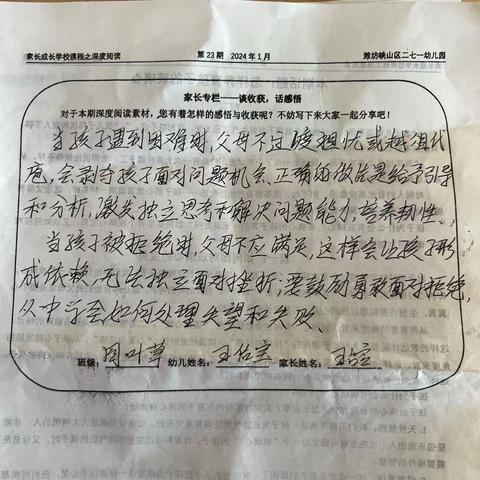 家长成长学校课程之深度阅读 第23期 2024年1月 潍坊峡山区二七一幼儿园
家长专栏——谈收获，话感悟
对于本期深度阅读素材，您有着怎样的感悟与收获呢？不妨写下来大家一起分享吧！
当孩子遇到困难时，父母不过度担忧或越俎代
庖，会剥夺孩子面对问题机会，正确的做法是给予引导
和分析，激发独立思考和解决问题能力，培养韧性、
当孩子被拒绝时，父母不应满足，这样会让孩子形
成依赖，无法独立面对挫折，要鼓励勇敢面对拒绝，
从中学会如何处理失望和失败、
班级：四叶草 幼儿姓名：王佑宝 家长姓名：